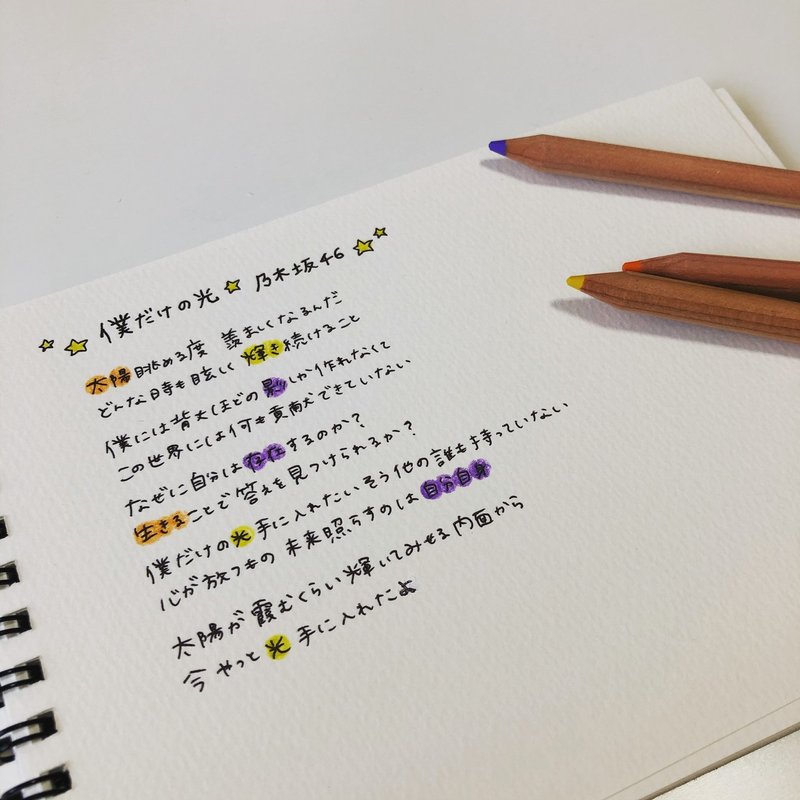 僕だけの光 乃木坂46
太陽眺める度 羨ましくなるんだ
どんな時も眩しく輝き続けること
僕には背丈ほどの影しか作れなくて
この世界には何も貢献できていない
なぜに自分は存在するのか?
生きることで答えを見つけられるか?
僕だけの光 手に入れたい そう他の誰も持っていない
心が放つもの 未来照らすのは自分自身
太陽が霞むくらい 輝いてみせる 内面から
今 やっと光 手に入れたよ